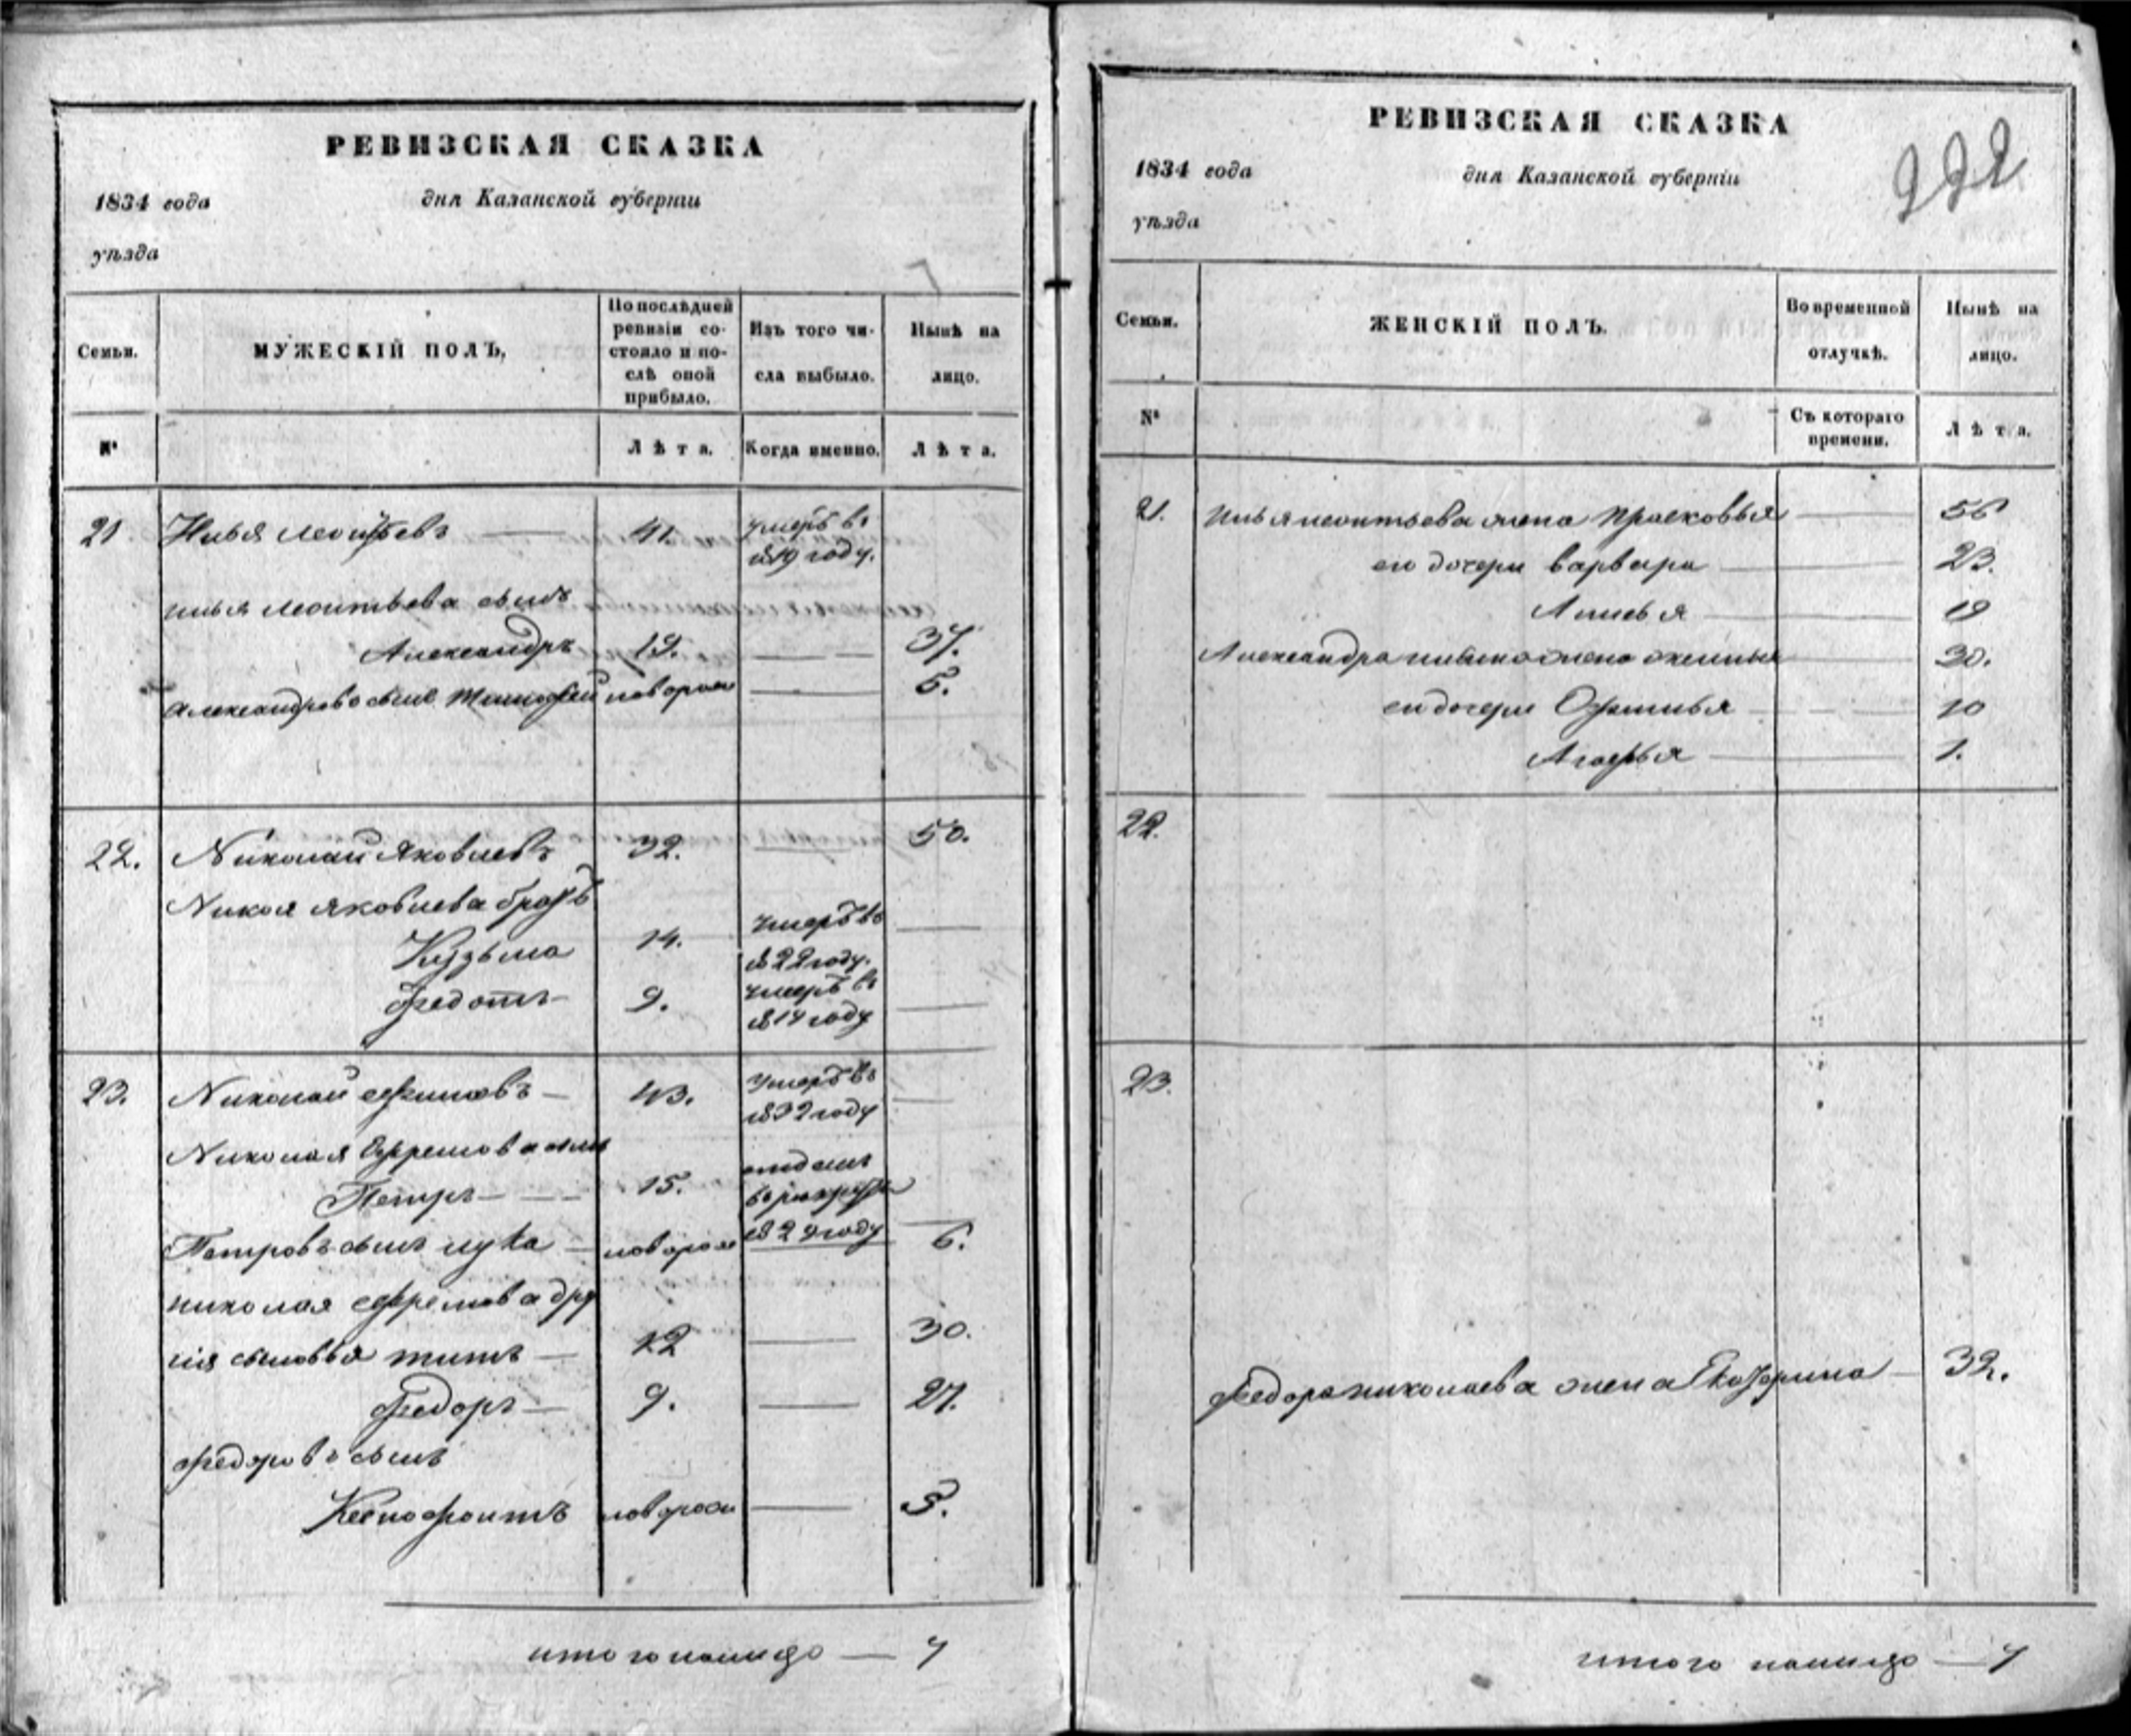 РЕВИЗСКАЯ СКАЗКА
1834 года дня Казанской губерніи
уѣзда
Семьи.
МУЖЕСКІЙ ПОЛЪ,
По послѣдней ревизіи состояло и послѣ оной прибыло.
Изъ того числа выбыло.
Нынѣ на лицо.
№
Лѣта.
Когда именно.
Лѣта.
21 Илья Леонтьевъ 41. умеръ въ
1819 году.
илья Леонтьева сынъ
Александръ 19. 37.
Александровъ сынъ Тимофей новорож 5.
22. Николай Яковлевъ 32. 50.
Никол Яковлева братъ
Кузьма 14. умеръ въ
1822 году.
Федотъ 9. умеръ въ
1814 году
23. Николай ефимовъ 43. умеръ въ
1832 году
Николая Ефремова сын
Петръ 15. отданъ
в рекруты
1829 году
Петровъ сынъ лука новорож 6.
николая ефремова дру
гія сыновья титъ 12 30.
Федоръ 9. 27.
Федоровъ сынъ
Ксенофонтъ новорож 3.
итого налицо — 7
РЕВИЗСКАЯ СКАЗКА
1834 года дня Казанской губерніи
уѣзда
222
Семьи.
ЖЕНСКІЙ ПОЛЪ.
Во временной отлучкѣ.
Нынѣ на лицо.
№
Съ котораго времени.
Лѣта.
21. Илья леонтьева жена Прасковья 56
ею дочери варвара 23.
19
Александра жена 30.
ею дочери Офимья 10
Агафья 1.
22.
23.
Федора николаева жена Екатерина 32.
итого налицо — 7